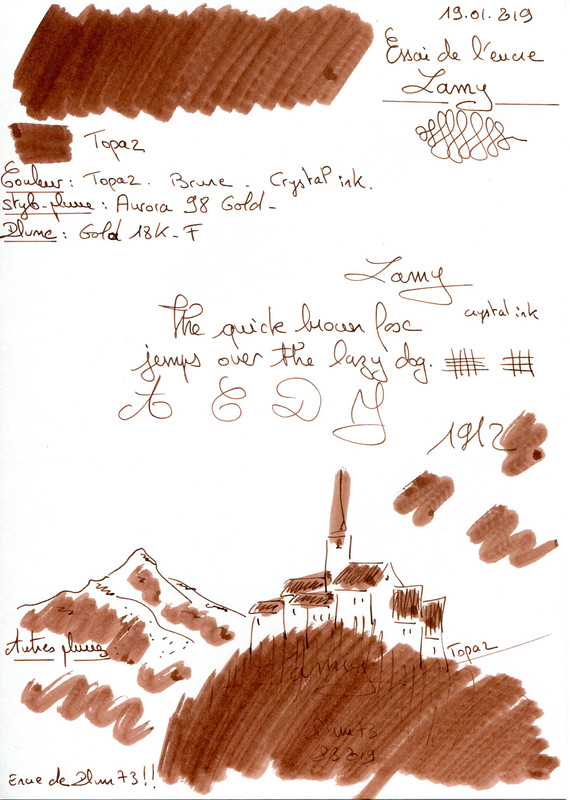 19.01.2019
Essai de l'encre
Lamy
Topaz
Couleur : Topaz. Brune. Crystal ink.
stylo-plume : Aurora 98 Gold-
Plume : Gold 18K-F
Lamy
crystal ink
The quick brown fox
jemps over the lazy dog.
A C D Y
1912
Autres plumes
Topaz
Lamy
Encre de Plum73!!